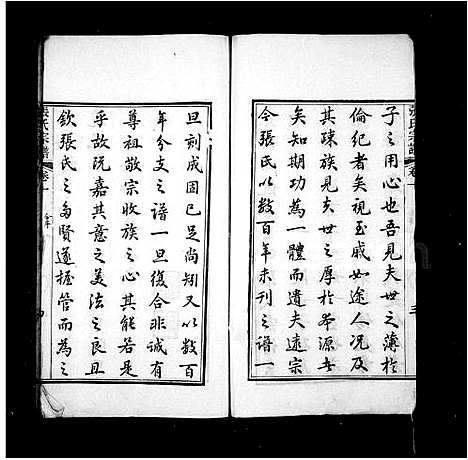 張氏宗譜 卷一
子之用心也吾見夫世之薄於
倫紀者矣視至戚如途人況及
其疎族見夫世之厚於本源者
矣知期功為一體而遺夫遠宗
今張氏以數百年未刊之譜一
旦刻成固已足尚矧又以數百
年分支之譜一旦復合非誠有
尊祖敬宗收族之心其能若是
乎故既嘉其意之美法之良且
欽張氏之多賢遂握管而為之
張氏宗譜 卷一